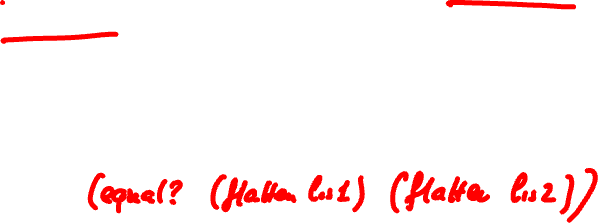 (equal? (flatten lis1) (flatten lis2))